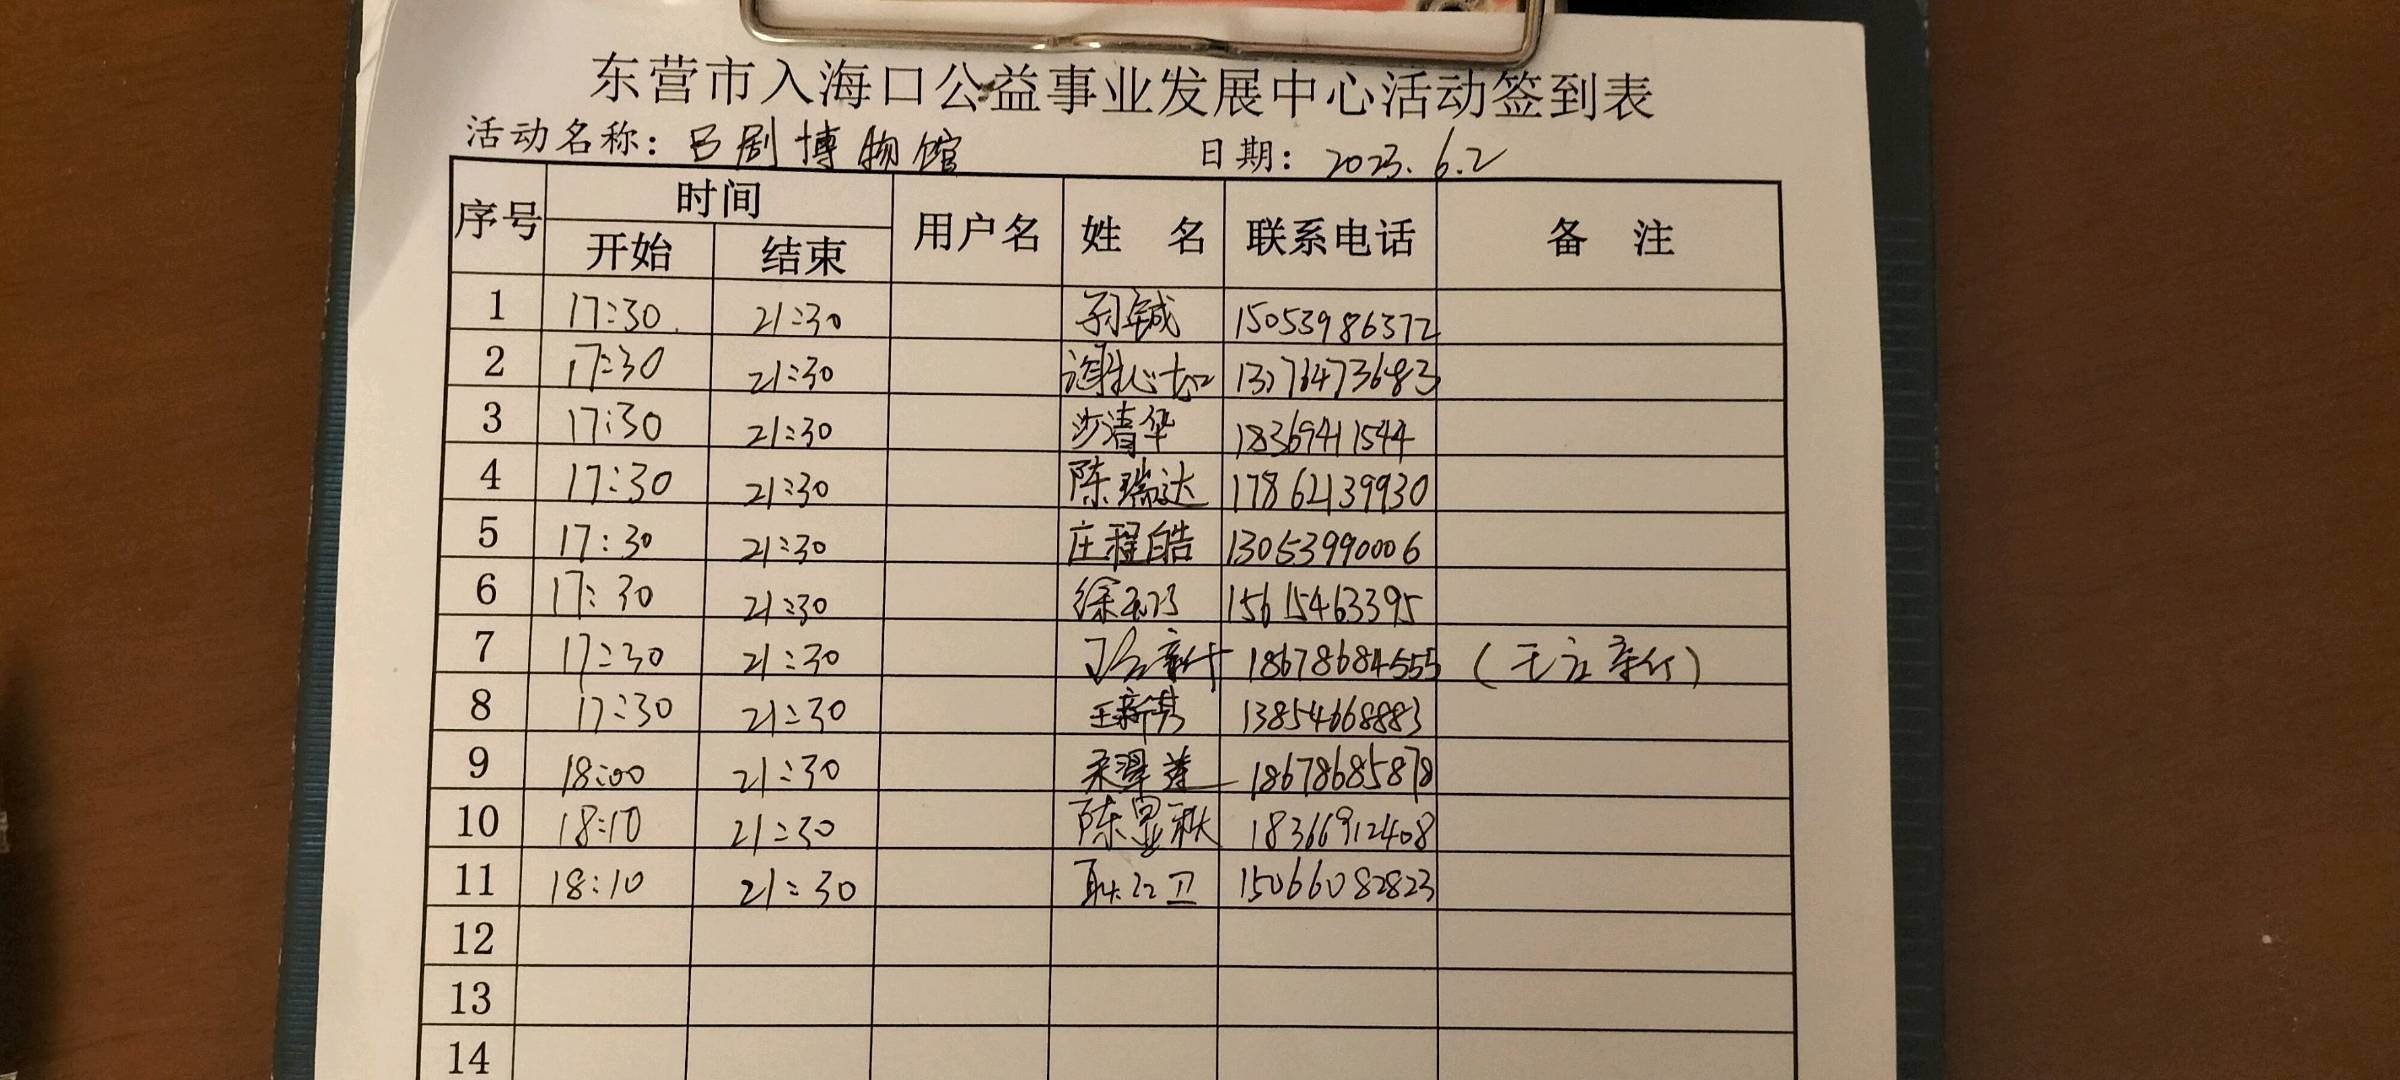 东营市入海口公益事业发展中心活动签到表
活动名称：吕剧博物馆 日期：2023.6.2
序号 时间 用户名 姓 名 联系电话 备 注
开始 结束
1 17:30 21:30 孙铖 15053986372
2 17:30 21:30 13276473683
3 17:30 21:30 沙清华 18369411544
4 17:30 21:30 陈瑞达 17862139930
5 17:30 21:30 庄程皓 13053990006
6 17:30 21:30 徐 15615463395
7 17:30 21:30 18678684555
8 17:30 21:30 王新芳 13854668883
9 18:00 21:30 18678685878
10 18:10 21:30 陈显秋 18366912408
11 18:10 21:30 耿红卫 15066082823
12
13
14